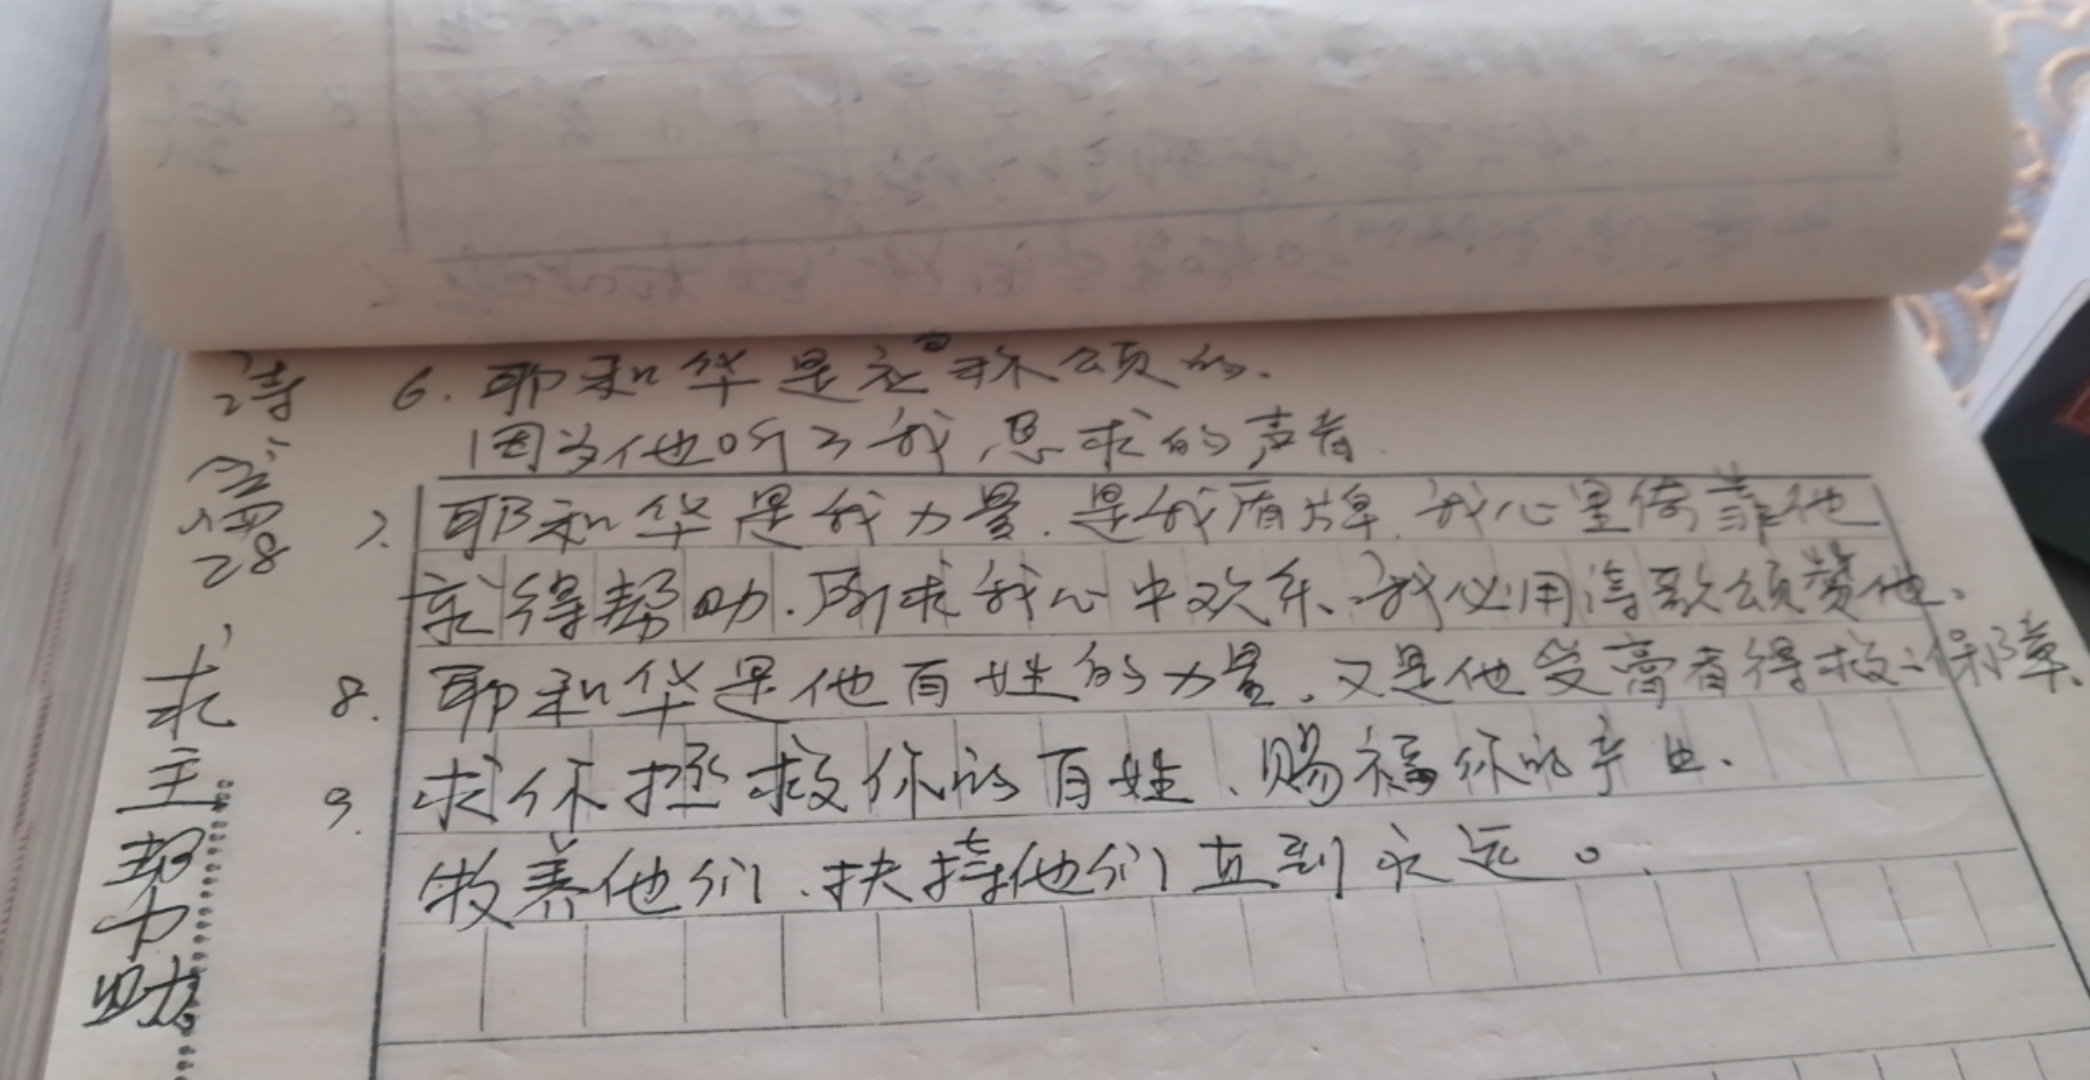 诗篇28
求主帮助
6. 耶和华是应当称颂的.
因为他听了我恳求的声音.
7. 耶和华是我力量.是我盾牌.我心里倚靠他
就得帮助.所以我心中欢乐、我必用诗歌颂赞他、
8. 耶和华是他百姓的力量、又是他受膏者得救的保障、
9. 求你拯救你的百姓、赐福你的产业、
牧养他们、扶持他们直到永远。